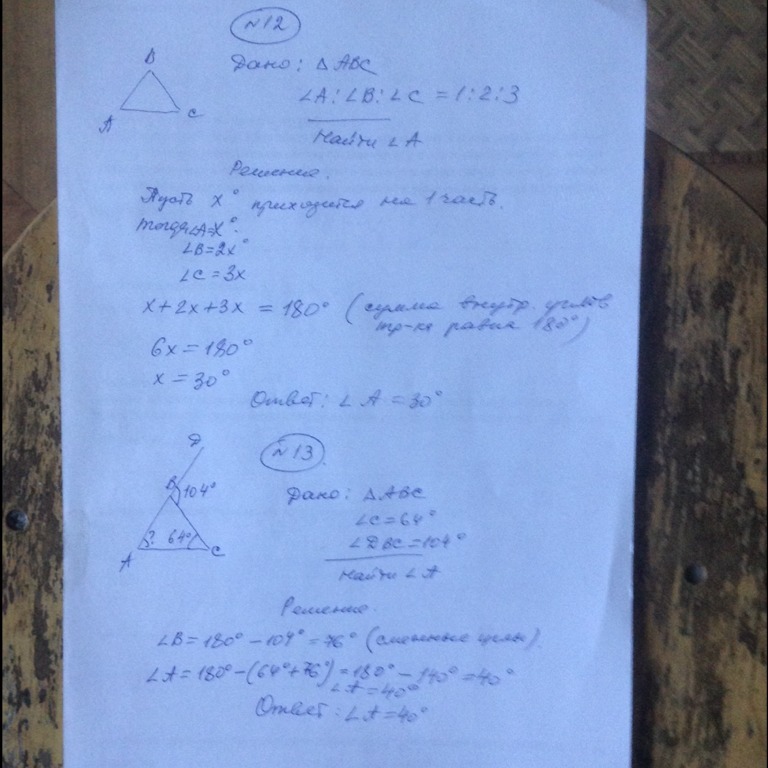 №12
B
A
C
Дано: △ABC
∠A:∠B:∠C = 1:2:3
Найти ∠A
Решение.
Пусть x° приходится на 1 часть.
тогда ∠A=x°.
∠B=2x°
∠C=3x
x+2x+3x = 180° (сумма внутр. углов
тр-ка равна 180°)
6x=180°
x=30°
Ответ: ∠A=30°
№13.
D
B
104°
? 64°
A
C
Дано: △ABC
∠C=64°
∠DBC=104°
Найти ∠A
Решение.
∠B=180°-104°=76° (смежные углы).
∠A=180°-(64°+76°)=180°-140°=40°
∠A=40°
Ответ: ∠A=40°